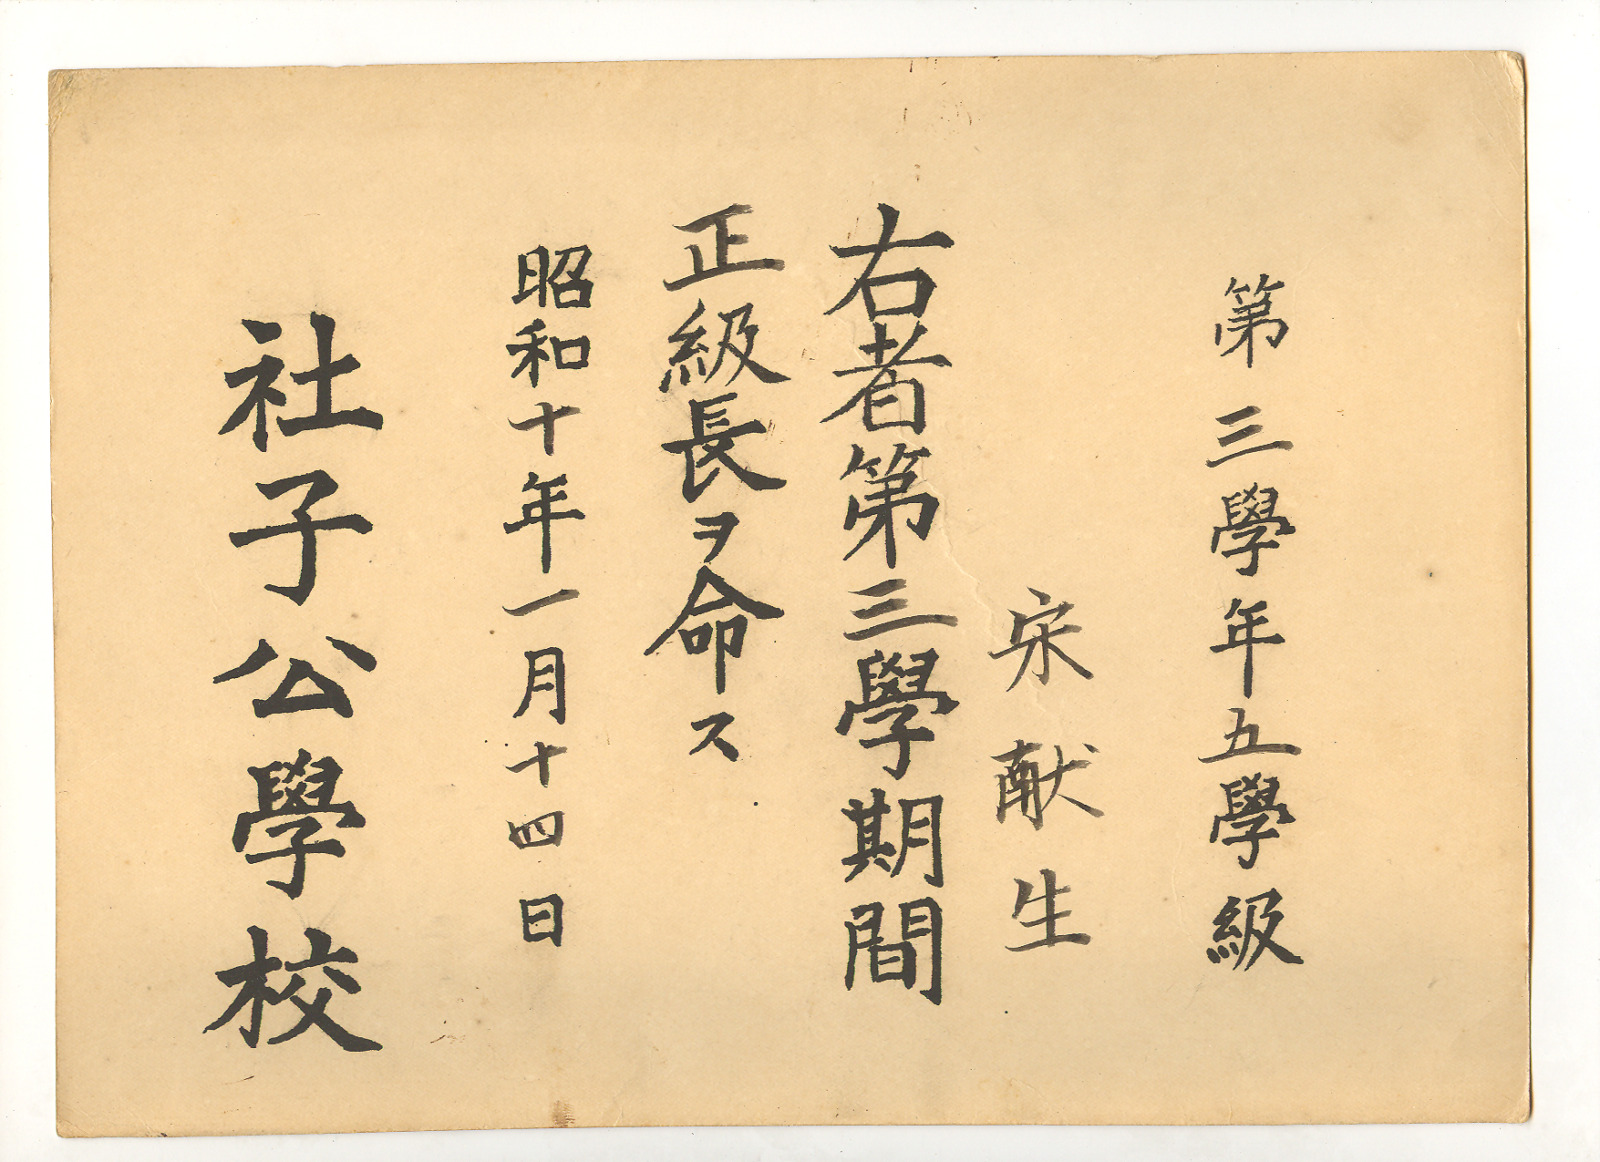 第三學年五學級
宋献生
右者第三學期間
正級長ヲ命ス
昭和十年一月十四日
社子公學校